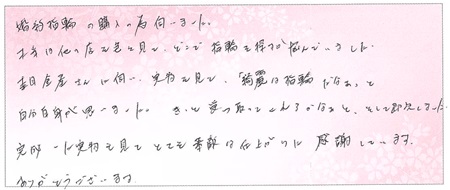 婚約指輪の購入の為伺いました。
本当は他の店を見て見て、どこで指輪を探すか悩んでいました
杢目金屋さんに伺い、実物を見て、綺麗な指輪だなぁっと
自分自身が思いました。きっと喜んで
完成した実物を見てとても素敵な仕上がりに感謝しています。
ありがとうございます。